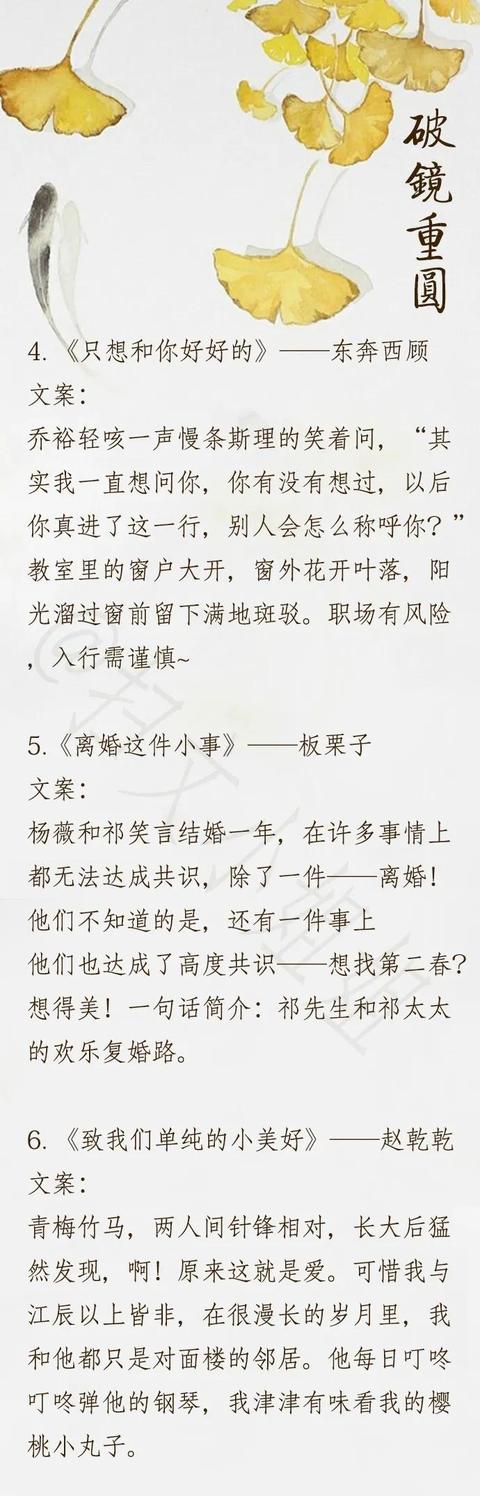 破鏡重圓
4.《只想和你好好的》——东奔西顾
文案：
乔裕轻咳一声慢条斯理的笑着问，“其
实我一直想问你，你有没有想过，以后
你真进了这一行，别人会怎么称呼你？”
教室里的窗户大开，窗外花开叶落，阳
光溜过窗前留下满地斑驳。职场有风险
，入行需谨慎~
5.《离婚这件小事》——板栗子
文案：
杨薇和祁笑言结婚一年，在许多事情上
都无法达成共识，除了一件——离婚！
他们不知道的是，还有一件事上
他们也达成了高度共识——想找第二春？
想得美！一句话简介：祁先生和祁太太
的欢乐复婚路。
6.《致我们单纯的小美好》——赵乾乾
文案：
青梅竹马，两人间针锋相对，长大后猛
然发现，啊！原来这就是爱。可惜我与
江辰以上皆非，在很漫长的岁月里，我
和他都只是对面楼的邻居。他每日叮咚
叮咚弹他的钢琴，我津津有味看我的樱
桃小丸子。
@扫文小姐姐